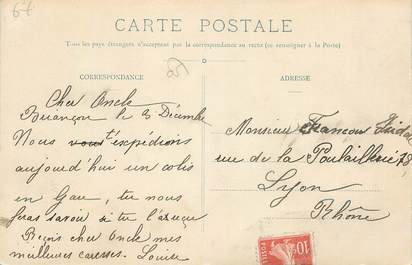 64
CARTE POSTALE
Tous les pays étrangers n'acceptent pas la correspondance au recto (se renseigner à la Poste)
CORRESPONDANCE
ADRESSE
Cher Oncle
Briançon le 3 Décembre
Nous vous t'expédions
aujourd'hui un colis
en Gare, tu nous
feras savoir si tu l'as reçu
Reçois cher Oncle mes
meilleures caresses. Louise
Monsieur Francou
rue de la Poulaillerie
Lyon
Rhône
POSTES
10